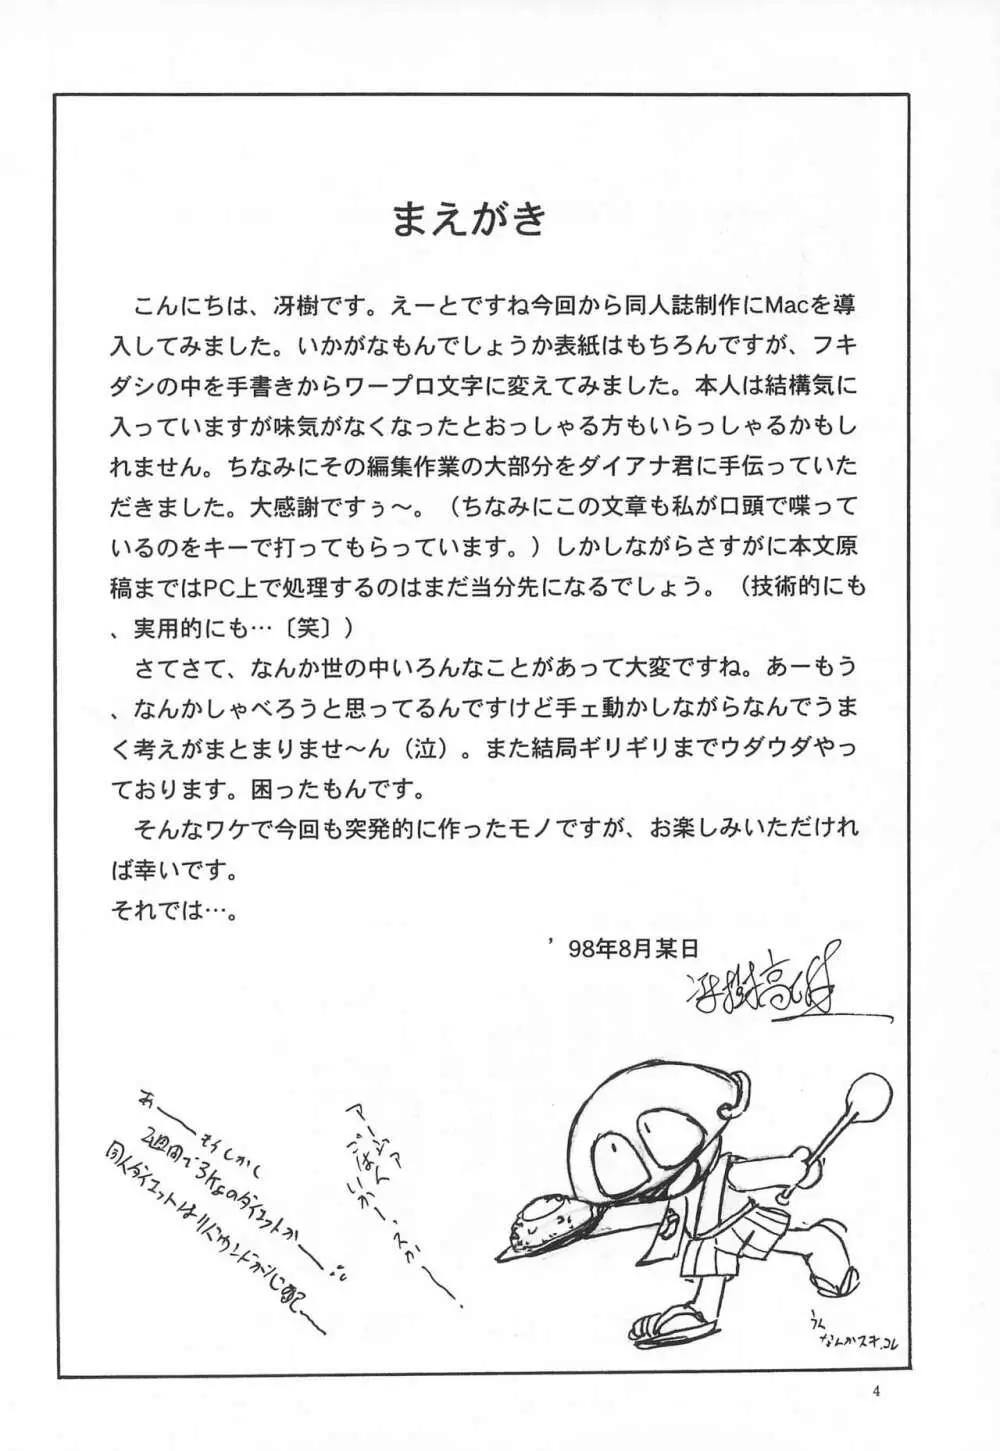 まえがき
　こんにちは、冴樹です。えーとですね今回から同人誌制作にMacを導
入してみました。いかがなもんでしょうか表紙はもちろんですが、フキ
ダシの中を手書きからワープロ文字に変えてみました。本人は結構気に
入っていますが味気がなくなったとおっしゃる方もいらっしゃるかもし
れません。ちなみにその編集作業の大部分をダイアナ君に手伝っていた
だきました。大感謝ですぅ〜。（ちなみにこの文章も私が口頭で喋って
いるのをキーで打ってもらっています。）しかしながらさすがに本文原
稿まではPC上で処理するのはまだ当分先になるでしょう。（技術的にも
、実用的にも…〔笑〕）
　さてさて、なんか世の中いろんなことがあって大変ですね。あーもう
、なんかしゃべろうと思ってるんですけど手ェ動かしながらなんでうま
く考えがまとまりませ〜ん（泣）。また結局ギリギリまでウダウダやっ
ております。困ったもんです。
　そんなワケで今回も突発的に作ったモノですが、お楽しみいただけれ
ば幸いです。
それでは…。
’98年8月某日
冴樹高雄
アージァ
ごはん
いかーっスかー、
あー もしかし
2週間で3Kgのダイエットかー
同人ダイエットはリバウンドが心配〜
うん
なんかスキ、コレ
4